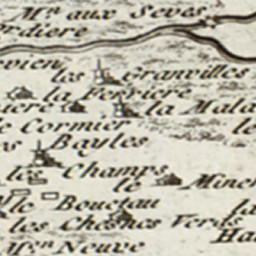 Mn. aux Seves
rdiere
vien
les Granvilles
la Ferriere
uere
la Mala
e Cormier
le
es Bayles
les Champs
le Miner
le Bouctau
la
les Chesnes Verds
Ha
Mon. Neuve